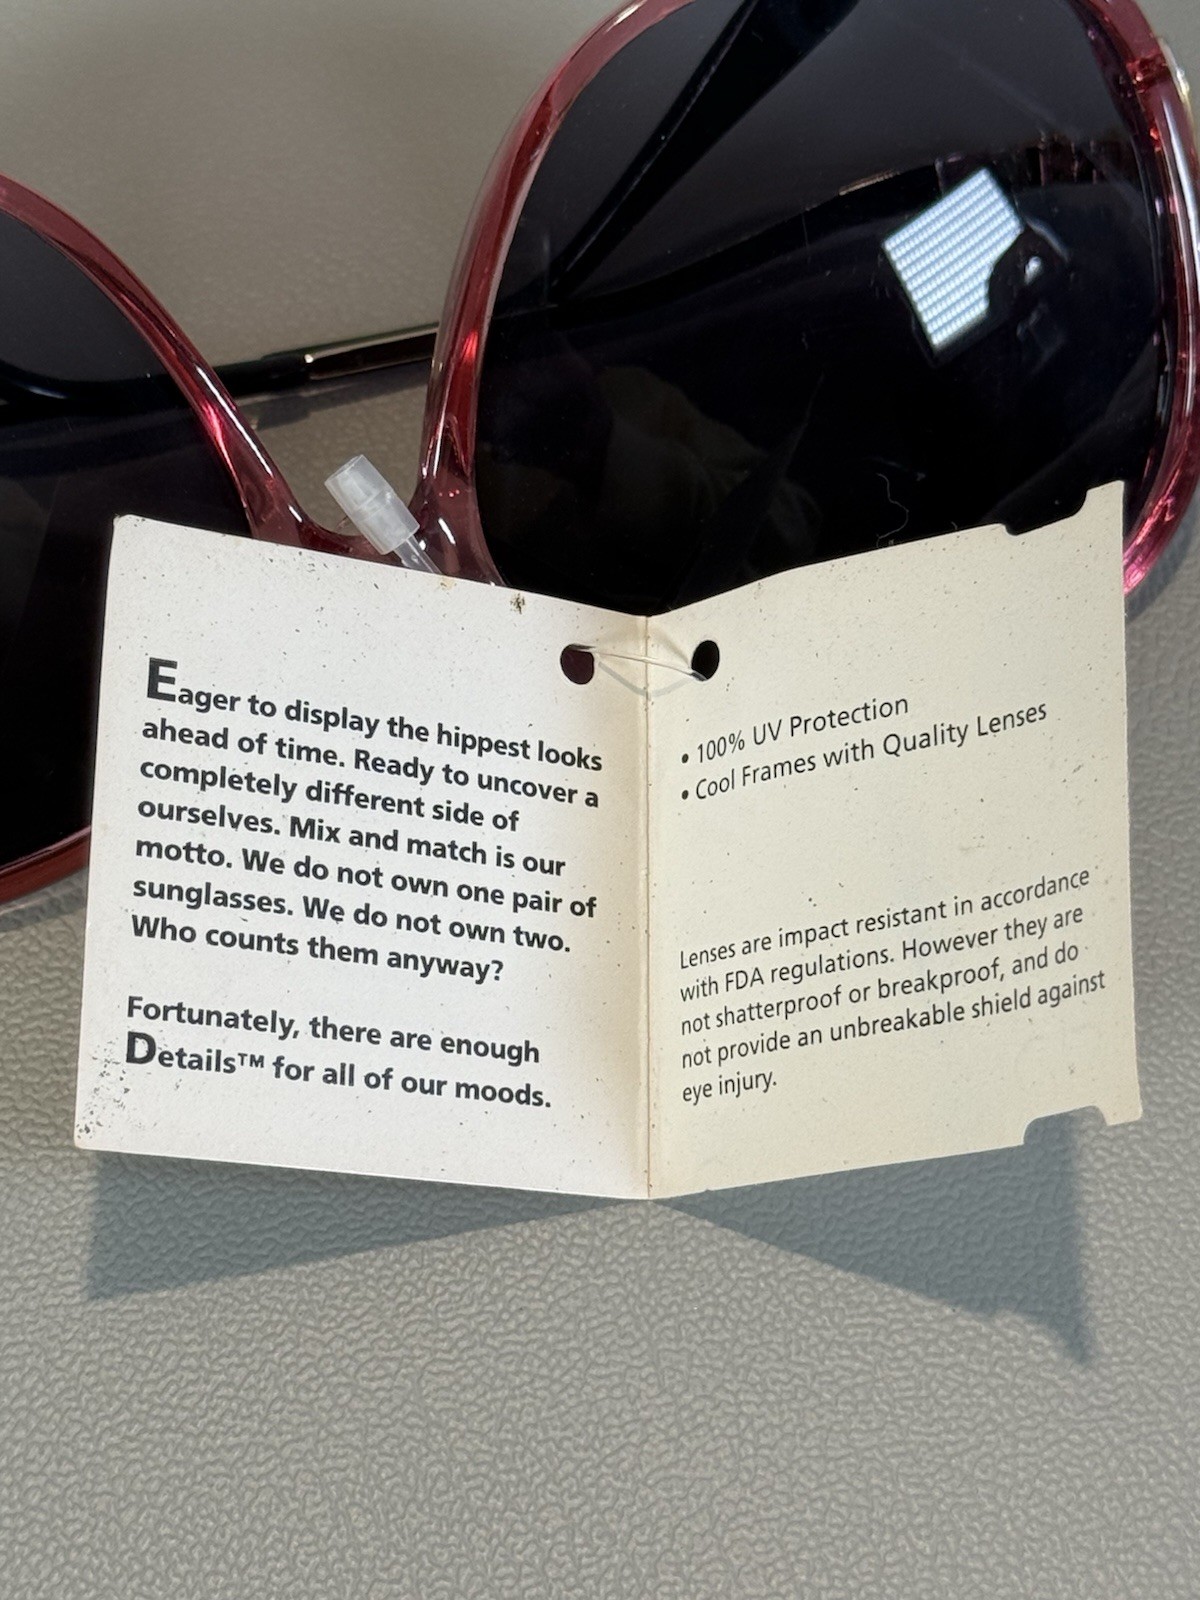 Eager to display the hippest looks
ahead of time. Ready to uncover a
completely different side of
ourselves. Mix and match is our
motto. We do not own one pair of
sunglasses. We do not own two.
Who counts them anyway?
Fortunately, there are enough
Details™ for all of our moods.
• 100% UV Protection
• Cool Frames with Quality Lenses
Lenses are impact resistant in accordance
with FDA regulations. However they are
not shatterproof or breakproof, and do
not provide an unbreakable shield against
eye injury.